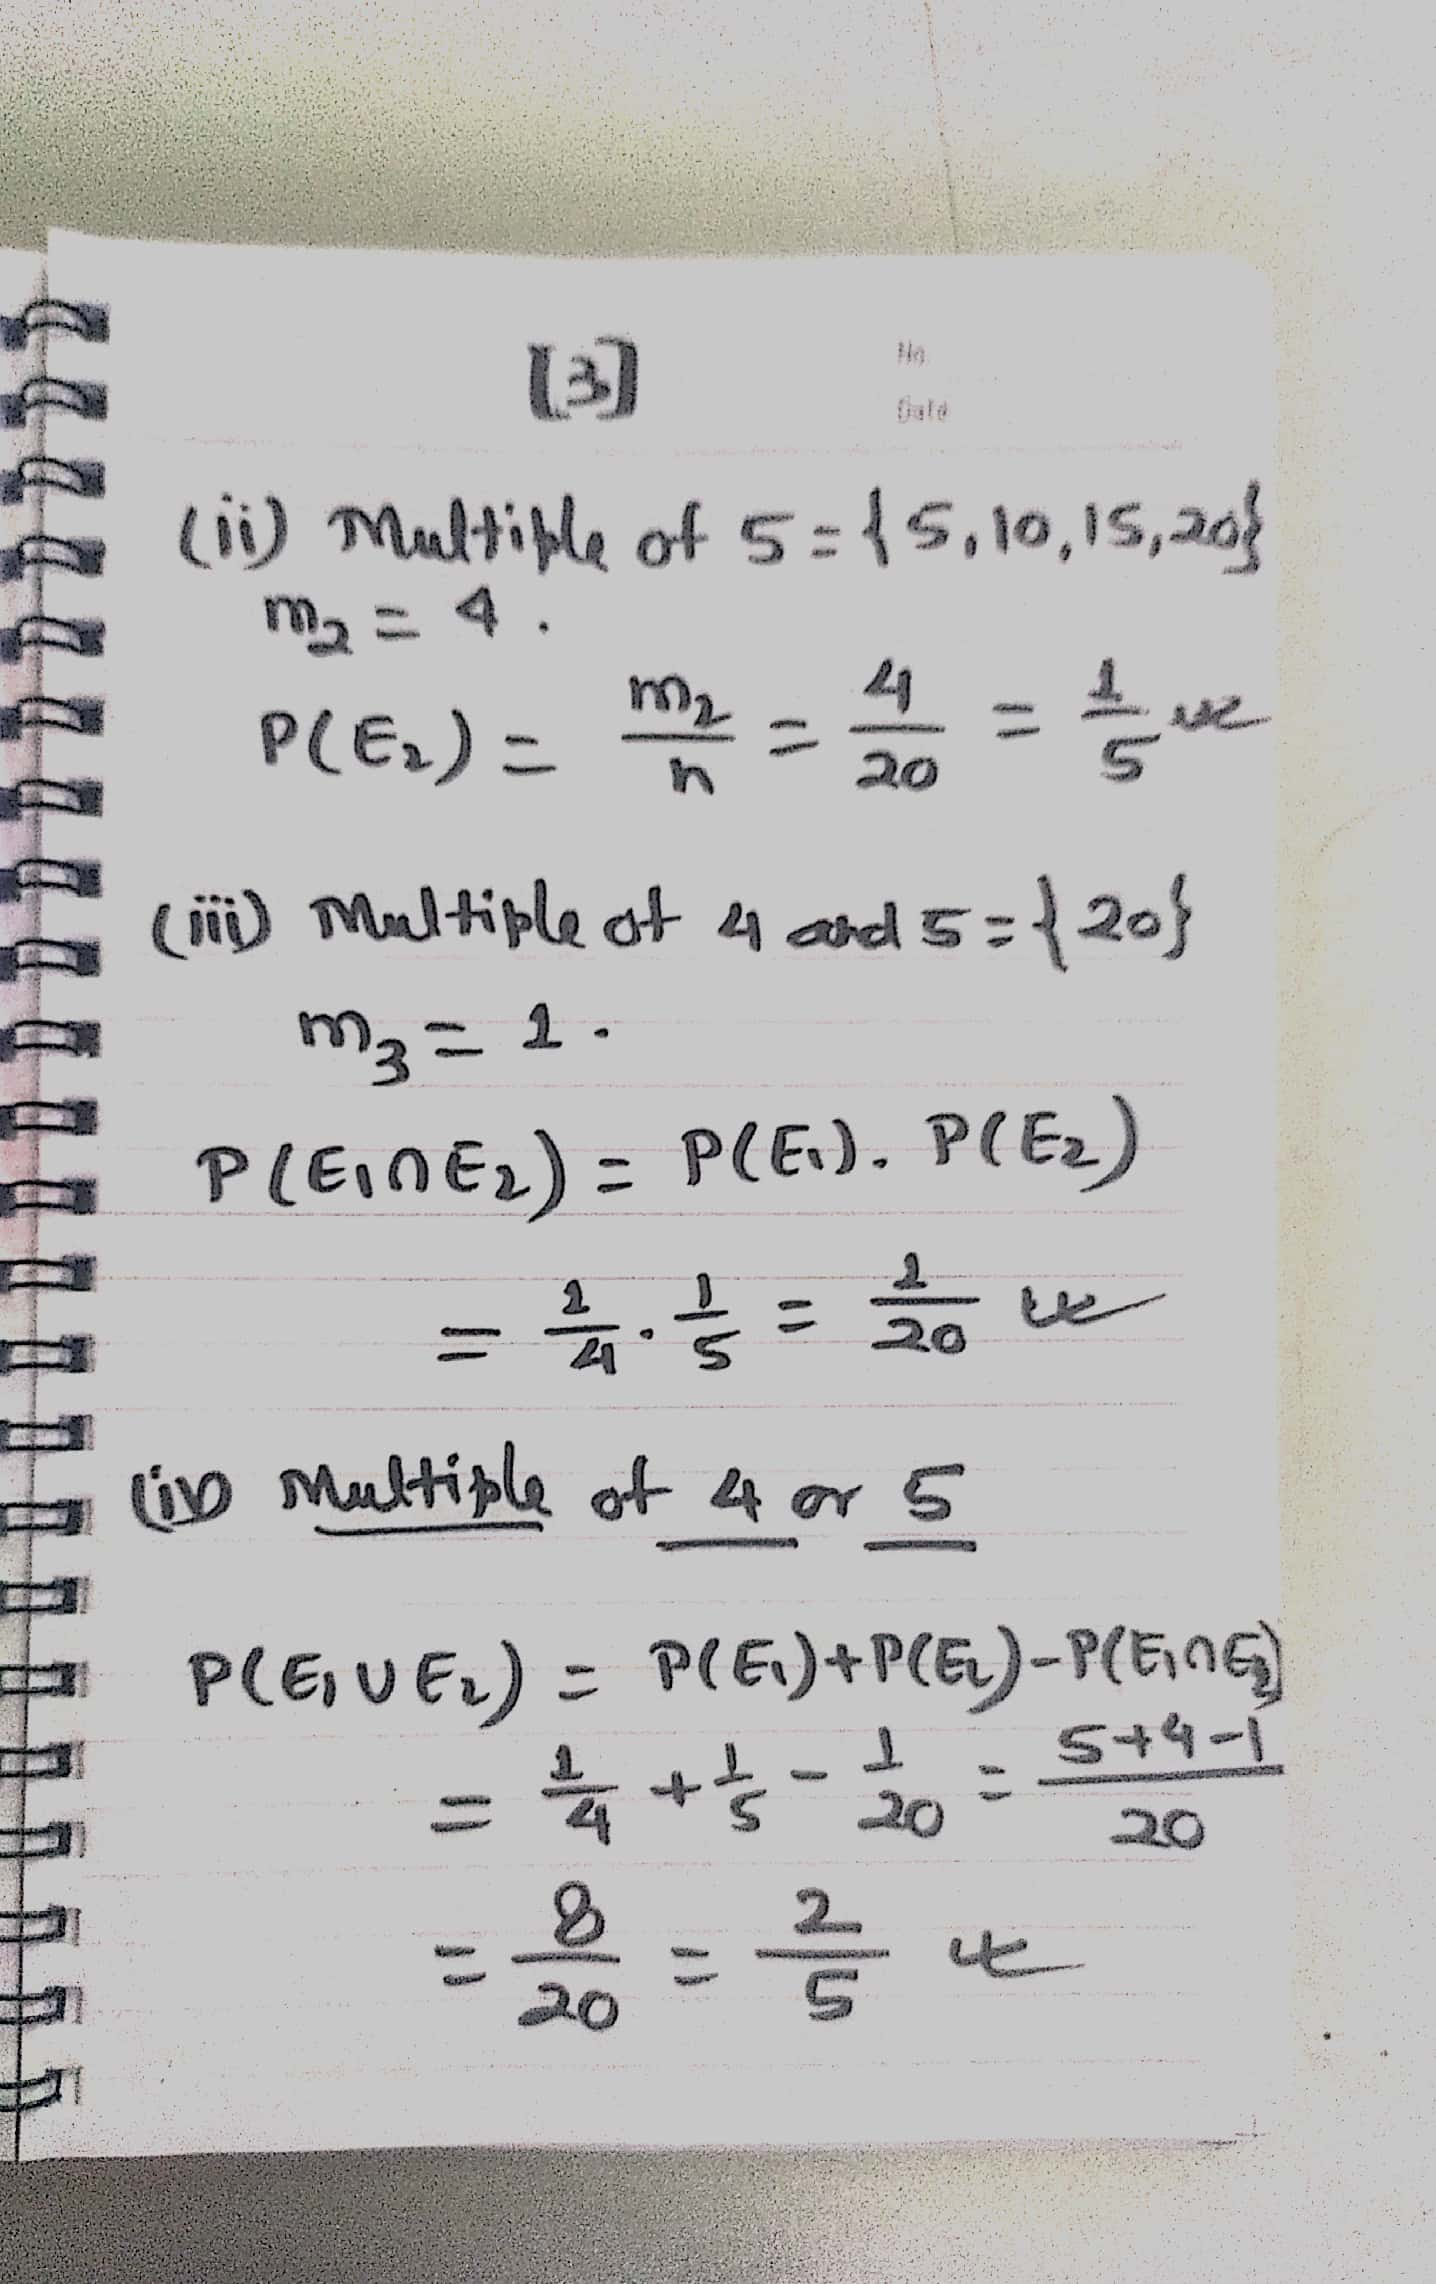 [3]
No
Date
(ii) Multiple of 5 = {5, 10, 15, 20}
m₂ = 4.
P(E₂) = m₂/n = 4/20 = 1/5
(iii) Multiple of 4 and 5 = {20}
m₃ = 1.
P(E₁∩E₂) = P(E₁). P(E₂)
= 1/4 . 1/5 = 1/20
(iv) Multiple of 4 or 5
P(E₁∪E₂) = P(E₁)+P(E₂)-P(E₁∩E₂)
= 1/4 + 1/5 - 1/20 = 5+4-1/20
= 8/20 = 2/5